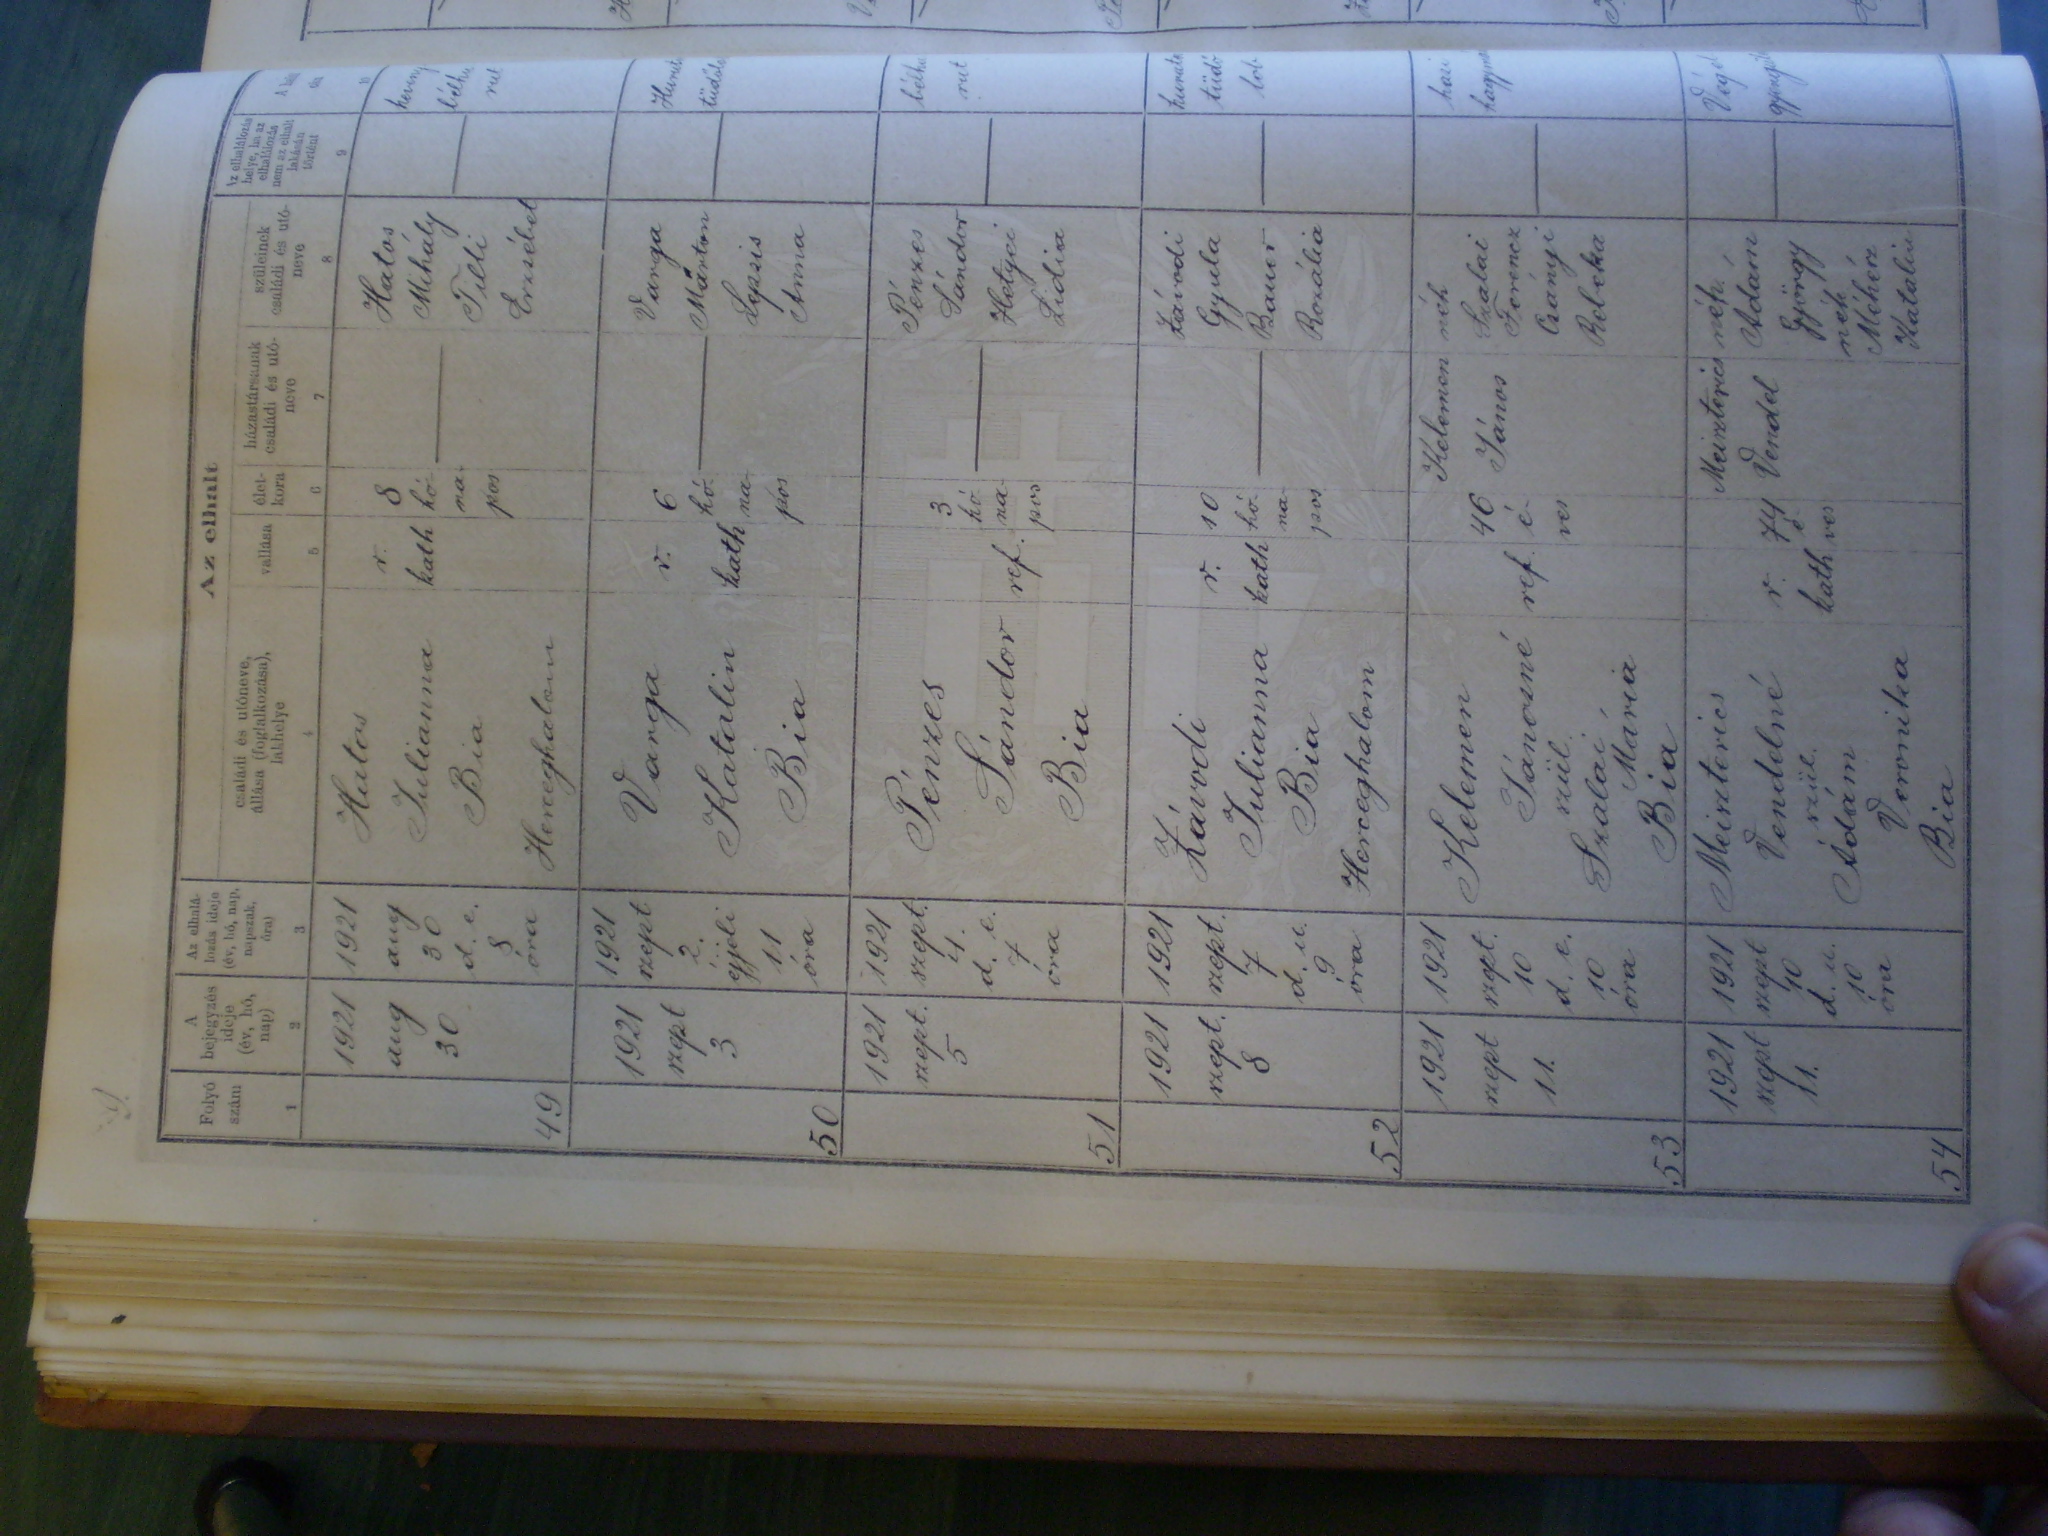 Az elhalt
Folyó
szám
A
bejegyzés
ideje
(év, hó,
nap)
Az elhalá-
lozás ideje
(év, hó, nap,
napszak,
óra)
családi és utóneve,
állása (foglalkozása),
lakhelye
vallása
élet-
kora
házastársának
családi és utó-
neve
szüleinek
családi és utó-
neve
Az elhalálozás
helye, ha az
elhalálozás
nem az elhalt
lakásán
történt
1
2
3
4
5
6
7
8
9
10
49
1921
aug
30
1921
aug
30
d. e.
8
óra
Hatos
Julianna
Bia
Herceghalom
r.
kath
8
hó-
na-
pos
Hatos
Mihály
Tilli
Erzsébet
bélhu
rut
50
1921
szept
3
1921
szept
2.
éjjeli
11
óra
Varga
Katalin
Bia
r.
kath
6
hó-
na-
pos
Varga
Márton
Lepsis
Anna
51
1921
szept.
5
1921
szept.
4.
d. e.
7
óra
Pénzes
Sándor
Bia
ref.
3
hó
na-
pos
Pénzes
Sándor
Hetyei
Lídia
bélhu
rut
52
1921
szept.
8
1921
szept.
7
d. u.
9
óra
Závodi
Julianna
Bia
Herceghalom
r.
kath
10
hó-
na-
pos
Závodi
Gyula
Bauer
Rozália
tüdő
lob
53
1921
szept
11.
1921
szept.
10
d. e.
10
óra
Kelemen
Jánosné
szül.
Szalai
Mária
Bia
ref.
46
é-
ves
Kelemen
János
néh
Szalai
Ferencz
Csányi
Rebeka
hasi
hagym
54
1921
szept
11.
1921
szept
10
d. u.
10
óra
Meiszterics
Vendelné
szül.
Ádám
Veronika
Bia
r.
kath
74
é-
ves
Meiszterics
Vendel
néh.
Ádám
György
néh
Méhész
Katalin
Végel
gyengül